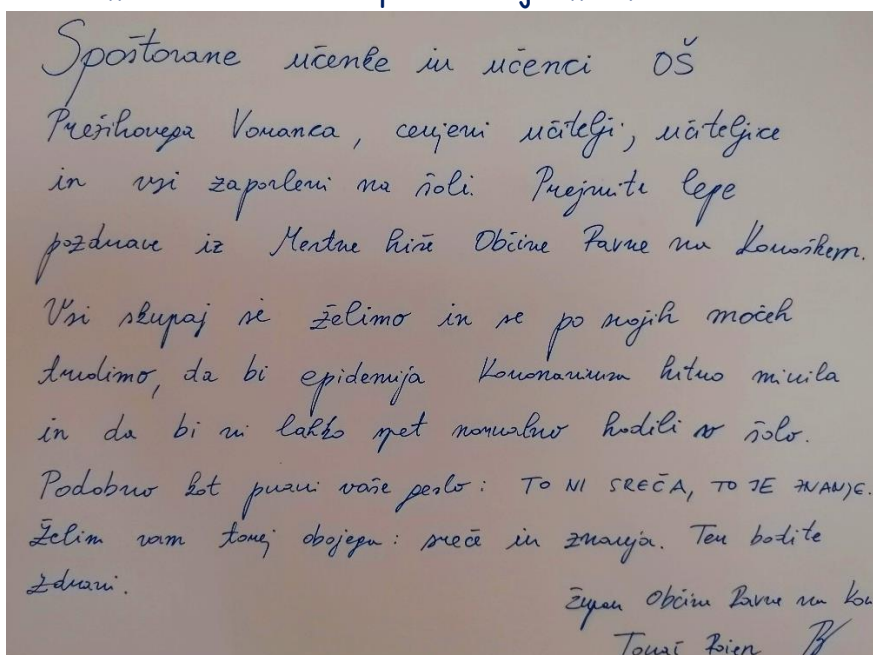 Spoštovane učenke in učenci OŠ
Prežihovega Voranca, cenjeni učitelji, učiteljice
in vsi zaposleni na šoli. Prejmite lepe
pozdrave iz Mestne hiše Občine Ravne na Koroškem.
Vsi skupaj si želimo in se po svojih močeh
trudimo, da bi epidemija Koronavirusa hitro minila
in da bi vi lahko spet normalno hodili v šolo.
Podobno kot pravi vaše geslo: TO NI SREČA, TO JE ZNANJE.
Želim vam torej obojega: sreče in znanja. Ter bodite
zdravi.
Župan Občine Ravne na Kor
Tomaž Rožen